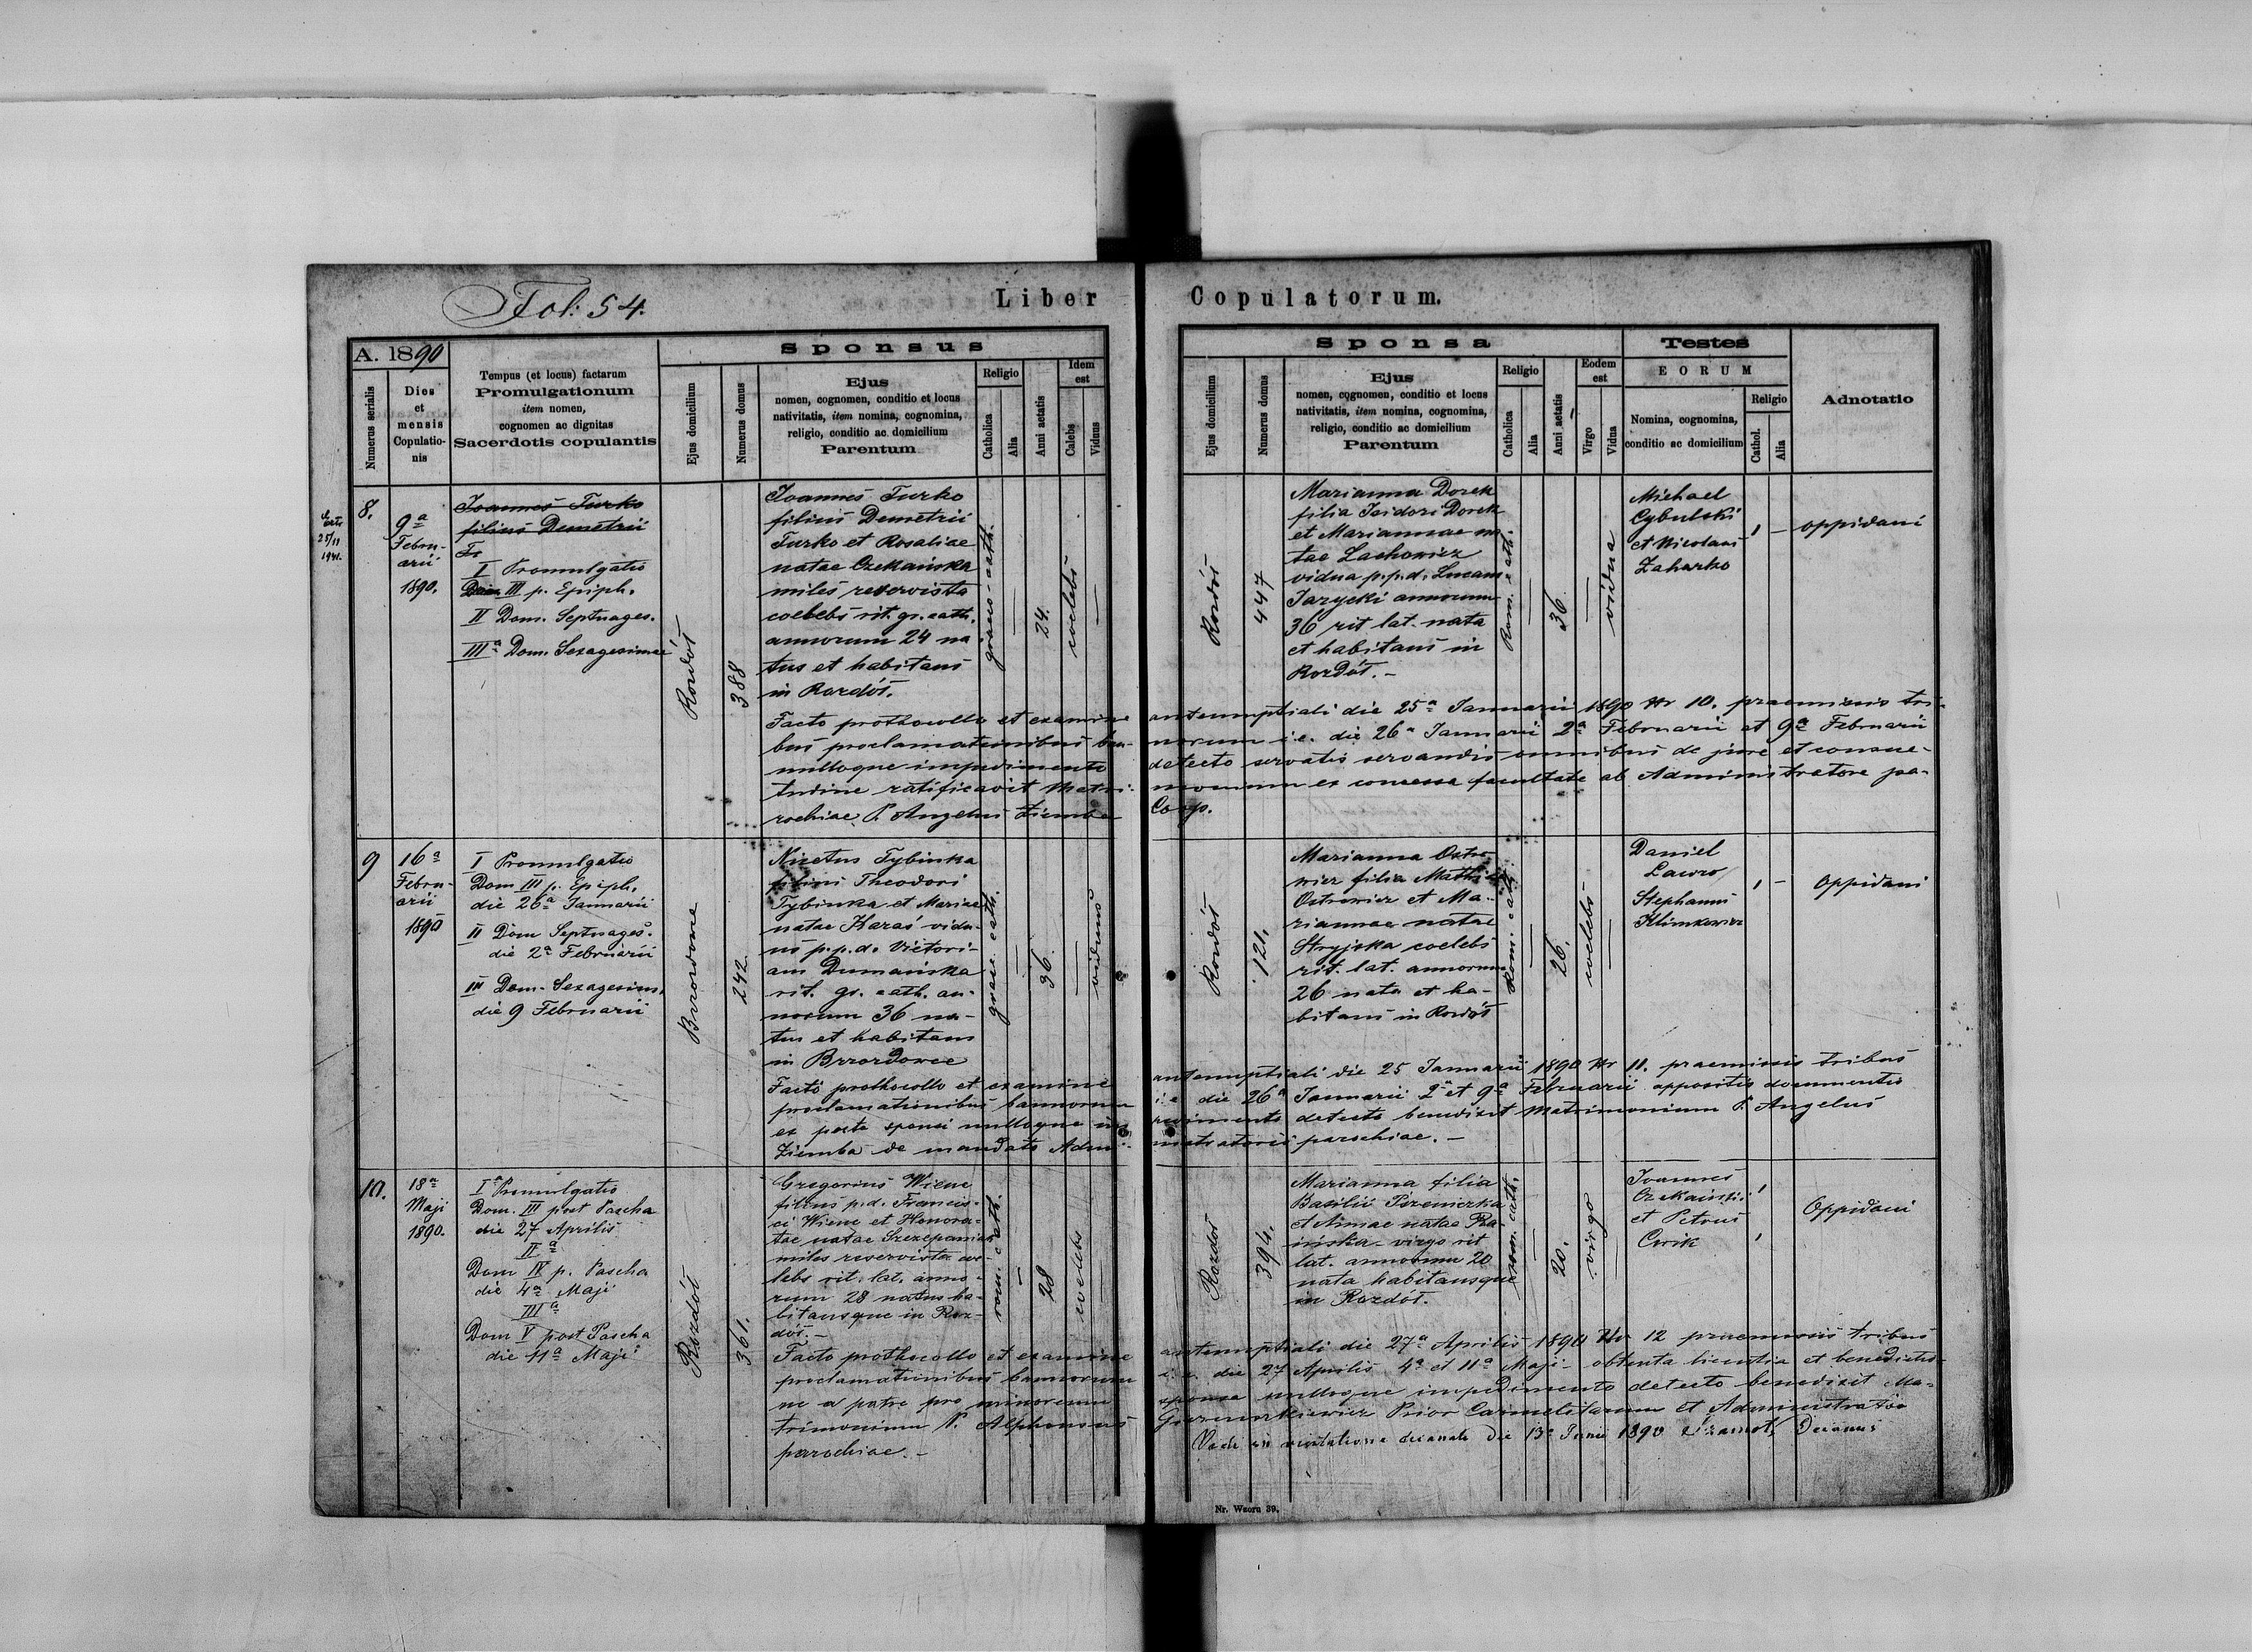 Fol: 54.
Liber Copulatorum.
A. 1890
Numerus serialis
Dies et mensis Copulatio-nis
Tempus (et locus) factarum
Promulgationum
item nomen,
cognomen ac dignitas
Sacerdotis copulantis
Sponsus
Ejus domicilium
Numerus domus
Ejus
nomen, cognomen, conditio et locus
nativitatis, item nomina, cognomina,
religio, conditio ac domicilium
Parentum
Religio
Catholica
Alia
Anni aetatis
Idem est
Calebs
Viduus
Sponsa
Ejus domicilium
Numerus domus
Ejus
nomen, cognomen, conditio et locus
nativitatis, item nomina, cognomina,
religio, conditio ac domicilium
Parentum
Religio
Catholica
Alia
Anni aetatis
Eodem est
Virgo
Vidua
Testes
EORUM
Nomina, cognomina,
conditio ac domicilium
Religio
Cathol.
Alia
Adnotatio
25/11
1941.
8.
9a
Febru-
arii
1890.
Joannes Turko
filius Demetrii
Fr
I Promulgatio
Dom III p. Epiph.
II Dom. Septuages.
IIIa Dom. Sexagesimae
Rozdół
388
Joannes Turko
filius Demetrii
Turko et Rosaliae
natae Czekańska
miles reservista
coelebs rit. gr. cath.
annorum 24 na
tus et habitans
in Rozdół.
graec-cath.
24.
coelebs
Rozdół
447
Marianna Dorek
filia Isidori Dorek
et Mariannae na
tae Lachowicz
vidua p.p.d. Lucam
Jarycki annorum
36 rit lat. nata
et habitans in
Rozdół. -
Rom. cath.
36
vidua
Michael
Cybulski
et Nicolaus
Zaharko
oppidani
Facto prothocollo et examine antenuptiali die 25a Januarii 1890 Nr 10. praemissis tri-
bus proclamationibus ban-norum i.e. die 26a Januarii 2a Februarii et 9a Februarii
nulloque impedimento detecto servatis servandis omnibus de jure et consue-
tudine ratificavit Matri-monium ex concessa facultate ab Administratore pa-
rochiae P. Angelus Ziemba Coop.
9
16a
Febru-
arii
1890
I Promulgatio
Dom III p. Epiph.
die 26a Januarii
II Dom Septuages.
die 2a Februarii
III Dom. Sexagesim.
die 9 Februarii
Brzozdowce
242
Nicetus Tybinka
filius Theodori
Tybinka et Mariae
natae Karaś vidu-
us p.p.d. Victori-
am Dumańska
rit. gr. cath. an-
norum 36 na-
tus et habitans
in Brzozdowce
graec. cath.
36
viduus
Rozdół
121.
Marianna Ostro-
wicz filia Mathiae
Ostrowicz et Ma-
riannae natae
Stryjska coelebs
rit. lat. annorum
26 nata et ha-
bitans in Rozdół
Rom. cath.
26.
coelebs
Daniel
Lawro
Stephanus
Klimkowicz
Oppidani
Facto prothocollo et examine antenuptiali die 25 Januarii 1890 Nr 11. praemissis tribus
proclamationibus bannorum i.e die 26a Januarii 2a et 9a Februarii appositis documentis
ex parte sponsi nulloque im pedimento detecto benedixit Matrimonium P. Angelus
Ziemba de mandato Admi-nistratoris parochiae. -
10.
18a
Maji
1890.
Ia Promulgatio
Dom. III post Pascha
die 27 Aprilis
IIa
Dom IV p. Pascha
die 4a Maji
IIIa
Dom V post Pascha
die 11a Maji
Rozdół
361.
Gregorius Wiene
filius p.d. Francis-
ci Wiene et Honora-
tae natae Szczepaniak
miles reservista coe-
lebs rit. lat. anno-
rum 28 natus ha-
bitansque in Roz-
dół. -
rom. cath.
28
coelebs
Rozdół
394.
Marianna filia
Basilii Pszeniczka
et Annae natae Ra-
ińska - virgo rit
lat. annorum 20
nata habitansque
in Rozdół.
rom. cath.
20.
virgo
Joannes
Czekański
et Petrus
Cwik
Oppidani
Facto prothocollo et examine antenuptiali die 27a Aprilis 1890 Nr 12 praemissis tribus
proclamationibus bannorum i.e. die 27 Aprilis 4a et 11a Maji - obtenta licentia et benedictio-
ne a patre pro minorenni sponsa nulloque impedimento detecto benedixit Ma-
trimonium P. Alphonsus Prior Carmelitarum et Administrator
parochiae. -
in visitatione decanali die 13a Junii 1890 Decanus
Nr. Wzoru 39.